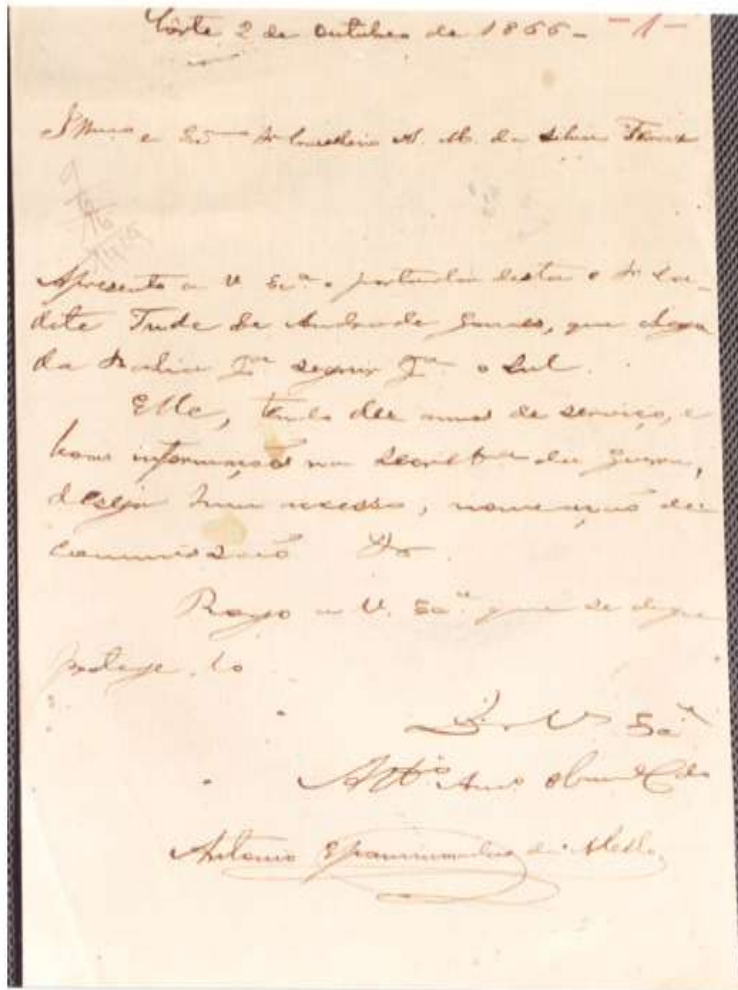 Côrte 2 de Outubro de 1866 - - 1 -
Illmo e Exmo Sr Conselheiro A. M. da Silva Ferraz
Apresento a V. Exa o portador desta o Sr Ca-
dete Tude de Andrade Gomes, que chega
da Bahia pa seguir pa o Sul.
Elle, tendo dez annos de serviço, e
boas informações na Secretra da Guerra,
deseja hum accesso, nomeação de
commissão
Rogo a V. Exa que se digne
protege-lo
De V. Exa
Atto Amo Obrmo Cdo
Antonio Epaminondas de Mello